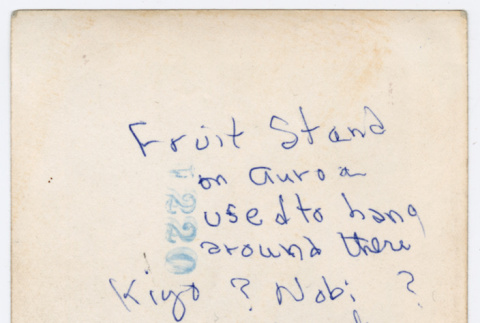 Fruit Stand
on auroa
used to hang
around there
Kiyo ? Nobi ?
220